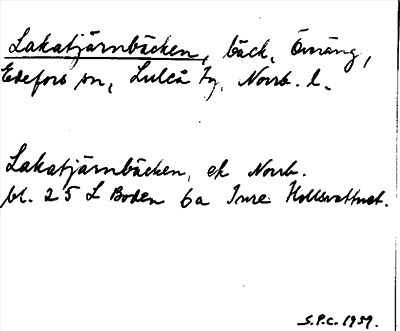 Lakatjärnbäcken, bäck, Övräng,
Edefors sn, Luleå tg, Norrb. l.
Lakatjärnbäcken, ek Norrb.
bl. 25 L Boden 6a Inre Hållsvattnet.
S.P.C. 1959.